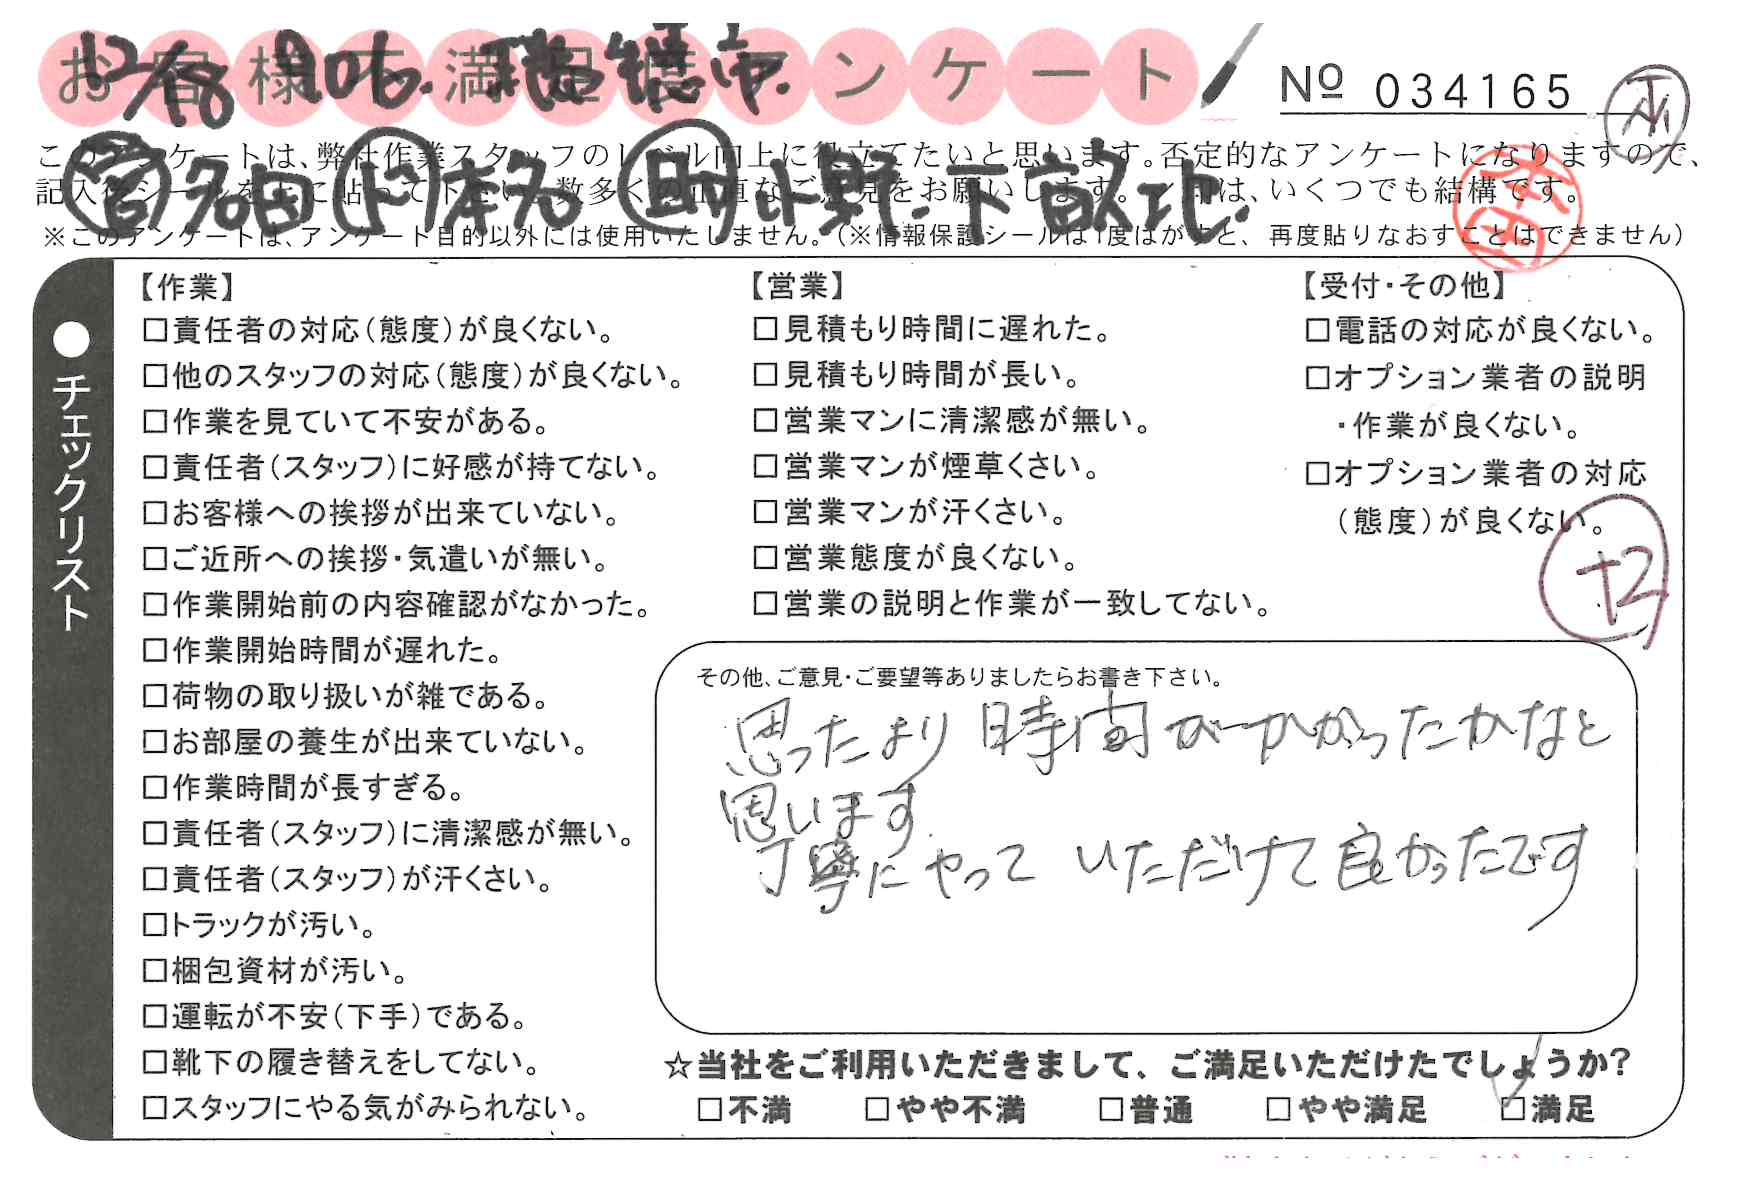 お客様不満足度アンケート
12/18 9016. 瑞穂市.
No 034165
このアンケートは、弊社作業スタッフのレベル向上に役立てたいと思います。否定的なアンケートになりますので、
記入後シールを上に貼って下さい。数多くの正直なご意見をお願いします。✓印は、いくつでも結構です。
※このアンケートは、アンケート目的以外には使用いたしません。(※情報保護シールは1度はがすと、再度貼りなおすことはできません)
本田
チェックリスト
【作業】
□責任者の対応(態度)が良くない。
□他のスタッフの対応(態度)が良くない。
□作業を見ていて不安がある。
□責任者(スタッフ)に好感が持てない。
□お客様への挨拶が出来ていない。
□ご近所への挨拶・気遣いが無い。
□作業開始前の内容確認がなかった。
□作業開始時間が遅れた。
□荷物の取り扱いが雑である。
□お部屋の養生が出来ていない。
□作業時間が長すぎる。
□責任者(スタッフ)に清潔感が無い。
□責任者(スタッフ)が汗くさい。
□トラックが汚い。
□梱包資材が汚い。
□運転が不安(下手)である。
□靴下の履き替えをしてない。
□スタッフにやる気がみられない。
【営業】
□見積もり時間に遅れた。
□見積もり時間が長い。
□営業マンに清潔感が無い。
□営業マンが煙草くさい。
□営業マンが汗くさい。
□営業態度が良くない。
□営業の説明と作業が一致してない。
【受付・その他】
□電話の対応が良くない。
□オプション業者の説明
・作業が良くない。
□オプション業者の対応
(態度)が良くない。
+2
その他、ご意見・ご要望等ありましたらお書き下さい。
思ったより時間がかかったかなと
思います
丁寧にやっていただけて良かったです
☆当社をご利用いただきまして、ご満足いただけたでしょうか?
□不満 □やや不満 □普通 □やや満足 ☑満足